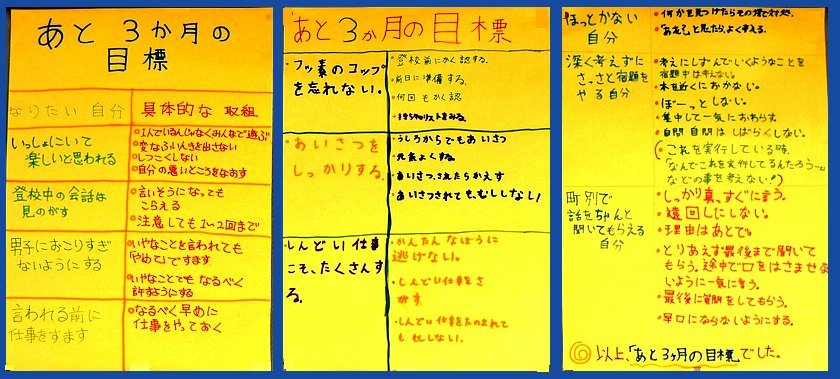 あと 3か月の
目標
なりたい 自分
具体的な 取組
いっしょにいて
楽しいと思われる
・1人でいるんじゃなくみんなで遊ぶ
・変なふんいきを出さない
・しつこくしない
・自分の悪いところをなおす
登校中の会話は
見のがす
・言いそうになっても
こらえる
・注意しても1〜2回まで
男子におこりすぎ
ないようにする
・いやなことを言われても
「やめて」ですます
・いやなことでも なるべく
許すようにする
言われる前に
仕事をすます
・なるべく早めに
仕事をやっておく
あと3か月の目標
・フッ素のコップ
を忘れない。
・登校前にかく認する。
・前日に準備する。
・何回もかく認
・持ち物リストをみる。
・あいさつを
しっかりする。
・うしろからでもあいさつ
・元気よくする。
・あいさつされたらかえす
・あいさつされても、むししない!
・しんどい仕事
こそ、たくさんす
る。
・かんたんなほうに
逃げない。
・しんどい仕事をさ
がす。
・しんどい仕事をたのまれて
も むししない。
ほっとかない
自分
・何かを見つけたらその場で
・「あれ?」と思ったら、よく考える。
深く考えずに
さっさと宿題を
やる自分
・考えにしずんでいくようなことを
宿題中は考えない。
・本を近くにおかない。
・ぼーっとしない。
・集中して一気におわらす。
・自問自問はしばらくしない。
(・これを実行している時、
「なんでこれを実行してるんだろう〜」
などの事を考えない!)
町別で
話をちゃんと
聞いてもらえる
自分
・しっかり真っすぐに言う。
・遠回しにしない。
・理由はあとで。
・とりあえず最後まで聞いて
もらう。途中で口をはさませな
いように一気に言う。
・最後に質問をしてもらう。
・早口にならないようにする。
以上、「あと3ヶ月の目標」でした。